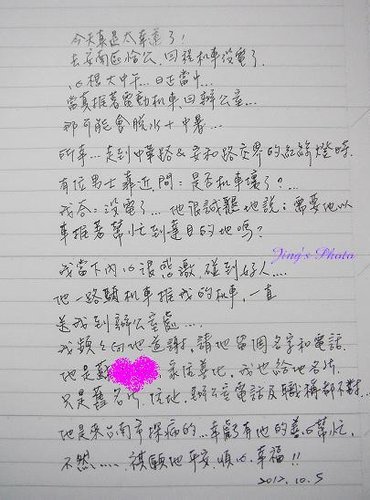 今天真是太幸運了!
去安南區洽公,回程機車沒電了.
心想大中午...日正當中...
當真推著電動機車回辦公室...
那可能會脫水+中暑...
所幸...走到中華路&安和路交界的紅綠燈時.
有位男士靠近問:是否机車壞了?...
我答:沒電了...他很誠懇地說:需要他以
車推著幫忙到達目的地嗎?
Jing's Photo
我當下內心很感激,碰到好人....
他一路騎机車推我的机車,一直
送我到辦公室處....
我頻向他道謝,請他留個名字和電話.
他是 我也給他名片.
只是舊名片 住址,辦公室電話及職稱都不對...
他是來台南市探病的...幸虧有他的善心幫忙,
不然.....祺願他平安、順心、幸福!!
2012.10.5